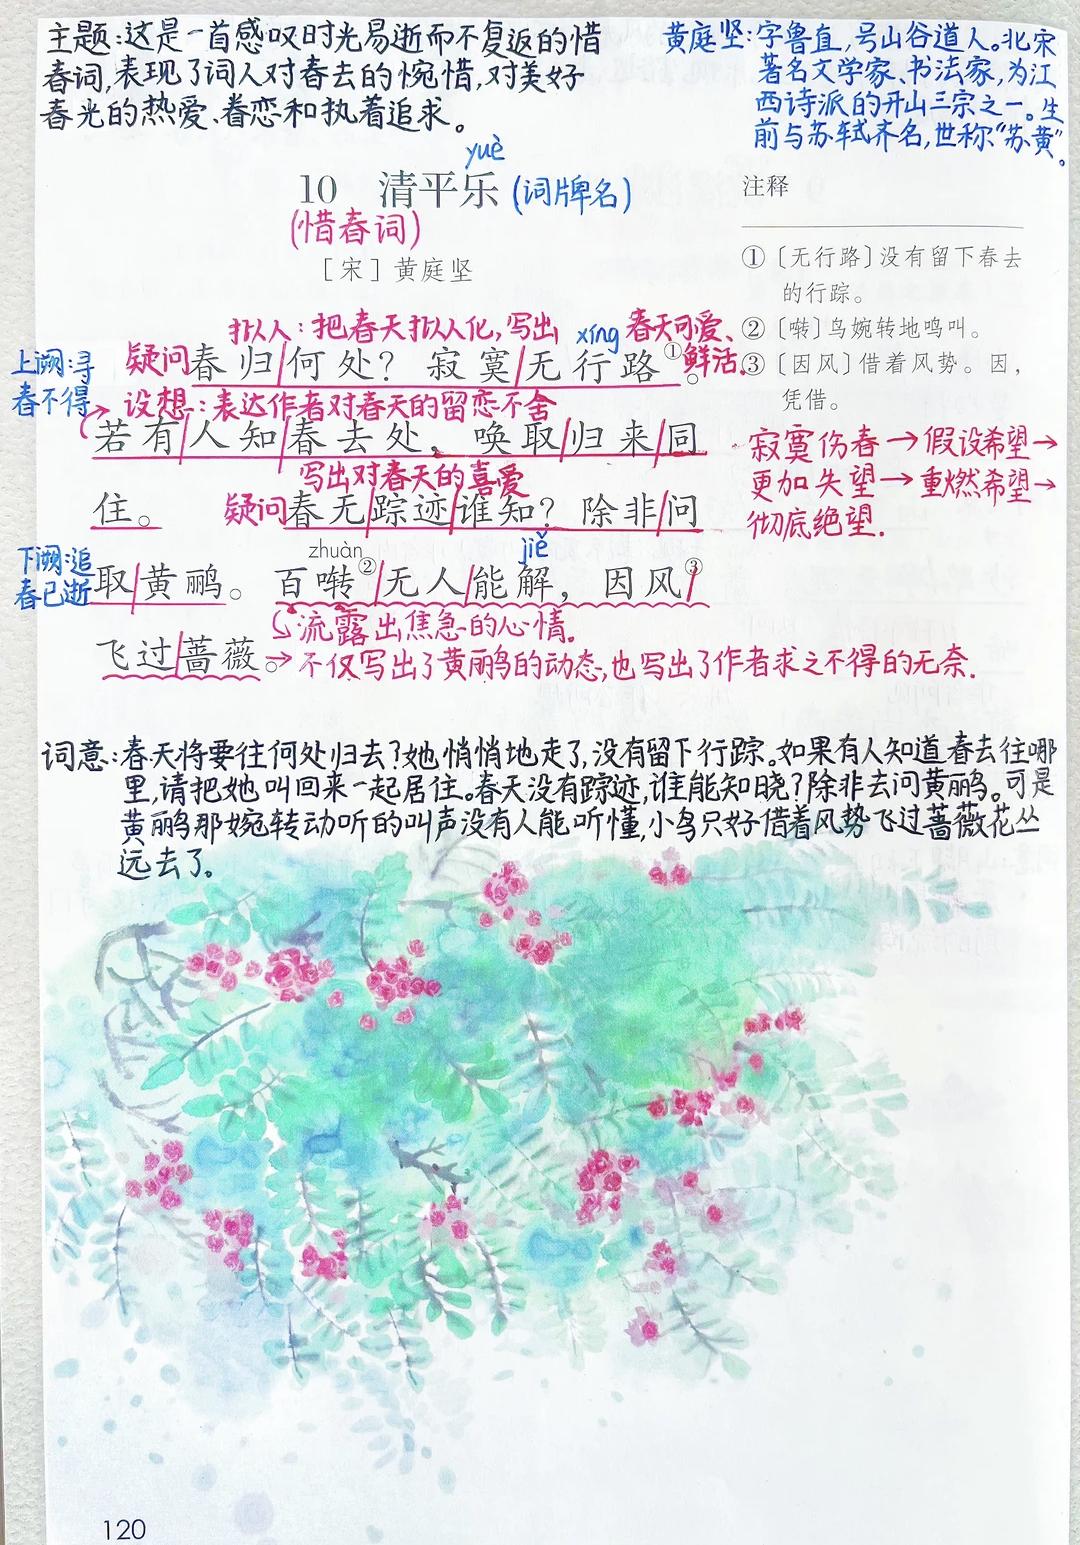 主题:这是一首感叹时光易逝而不复返的惜
春词,表现了词人对春去的惋惜,对美好
春光的热爱、眷恋和执着追求。
黄庭坚:字鲁直,号山谷道人。北宋
著名文学家、书法家,为江
西诗派的开山三宗之一。生
前与苏轼齐名,世称“苏黄”。
yuè
10 清平乐(词牌名)
(惜春词)
[宋]黄庭坚
注释
①〔无行路〕没有留下春去
的行踪。
②〔啭〕鸟婉转地鸣叫。
③〔因风〕借着风势。因,
凭借。
拟人:把春天拟人化,写出 xíng 春天可爱、
上阙:寻 疑问 春归/何处?寂寞/无行路①。鲜活.
春不得 设想:表达作者对春天的留恋不舍
若有/人知/春去处,唤取/归来/同
写出对春天的喜爱
住。 疑问 春无/踪迹/谁知?除非/问
zhuàn jiě
下阙:追
春已逝 取/黄鹂。百啭②/无人/能解,因风③/
流露出焦急的心情.
飞过/蔷薇。→不仅写出了黄鹂的动态,也写出了作者求之不得的无奈.
寂寞伤春→假设希望→
更加失望→重燃希望→
彻底绝望.
词意:春天将要往何处归去?她悄悄地走了,没有留下行踪。如果有人知道春去往哪
里,请把她叫回来一起居住。春天没有踪迹,谁能知晓?除非去问黄鹂。可是
黄鹂那婉转动听的叫声没有人能听懂,小鸟只好借着风势飞过蔷薇花丛
远去了。
120